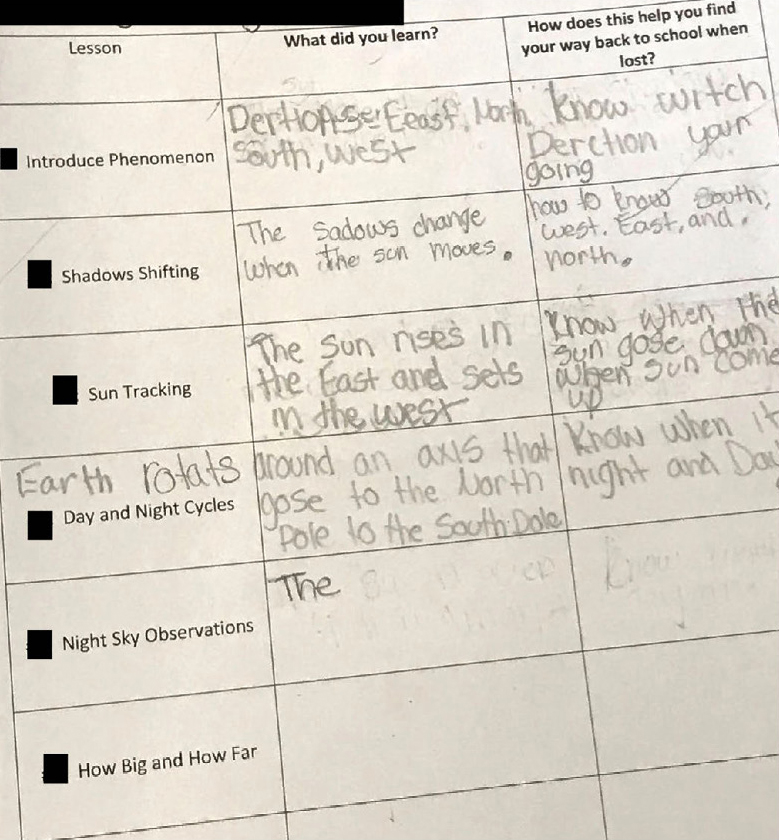 Lesson
What did you learn?
How does this help you find
your way back to school when
lost?
Introduce Phenomenon
Eeast, North
South, west
know witch
Derction your
going
Shadows Shifting
The Sadows change
when the sun moves.
how to know South,
west. East, and.
north.
Sun Tracking
The Sun rises in
the East and sets
in the west
Know when the
sun gose down
when sun come
up
Earth rotats
Day and Night Cycles
around an axis that
gose to the North
Pole to the South Pole
Know when it
night and Day
Night Sky Observations
The
How Big and How Far